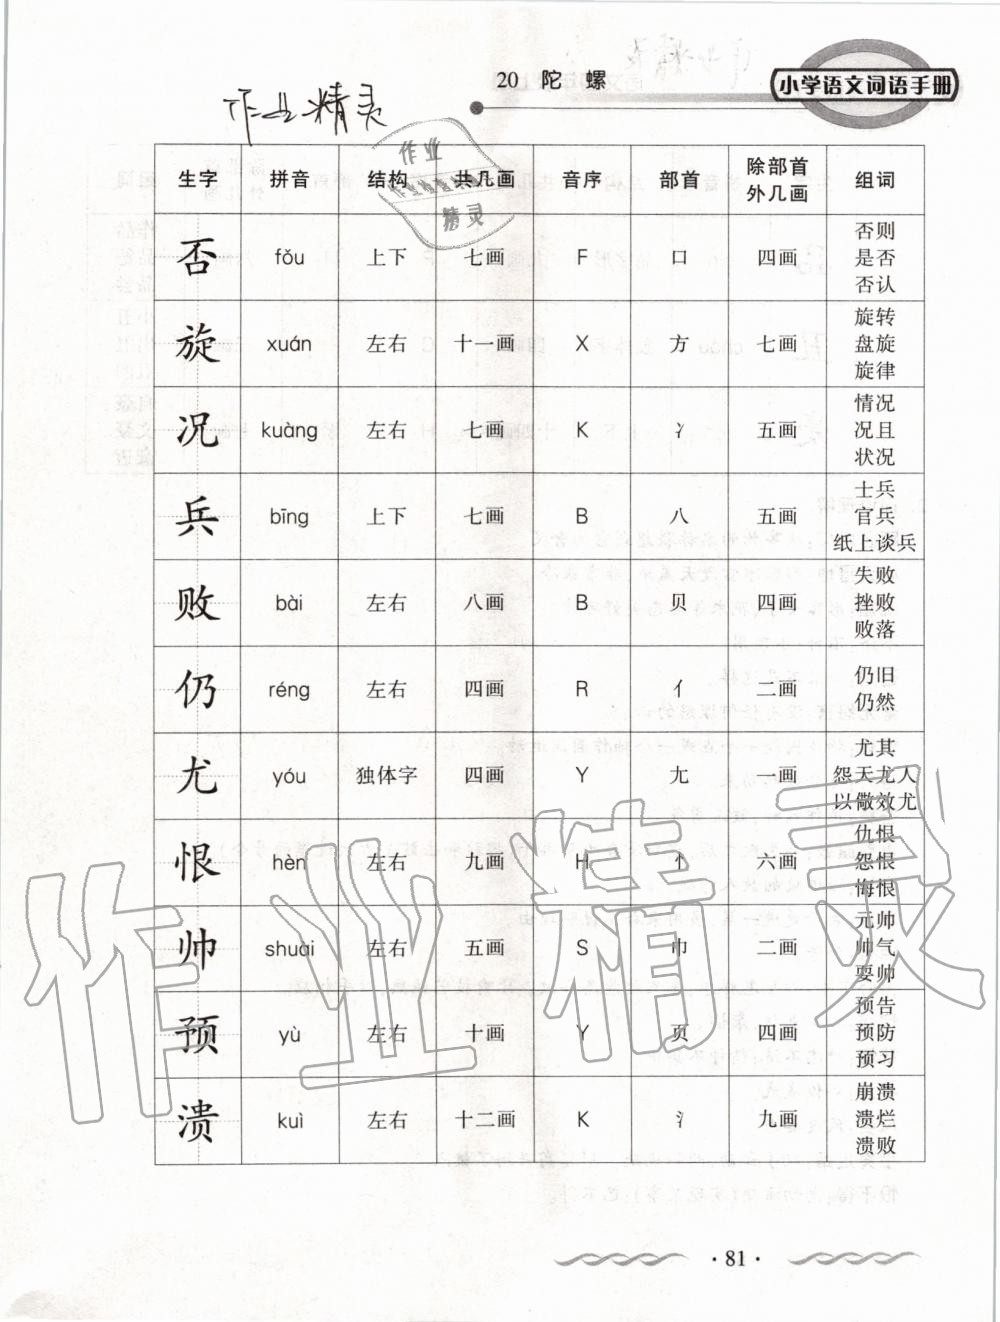 20 陀 螺
小学语文词语手册
作业精灵
作业
精灵
生字 拼音 结构 共几画 音序 部首 除部首外几画 组词
否 fǒu 上下 七画 F 口 四画 否则 是否 否认
旋 xuán 左右 十一画 X 方 七画 旋转 盘旋 旋律
况 kuàng 左右 七画 K 冫 五画 情况 况且 状况
兵 bīng 上下 七画 B 八 五画 士兵 官兵 纸上谈兵
败 bài 左右 八画 B 贝 四画 失败 挫败 败落
仍 réng 左右 四画 R 亻 二画 仍旧 仍然
尤 yóu 独体字 四画 Y 尢 一画 尤其 怨天尤人 以儆效尤
恨 hèn 左右 九画 H 忄 六画 仇恨 怨恨 悔恨
帅 shuài 左右 五画 S 巾 二画 元帅 帅气 耍帅
预 yù 左右 十画 Y 页 四画 预告 预防 预习
溃 kuì 左右 十二画 K 氵 九画 崩溃 溃烂 溃败
作业精灵
·81·